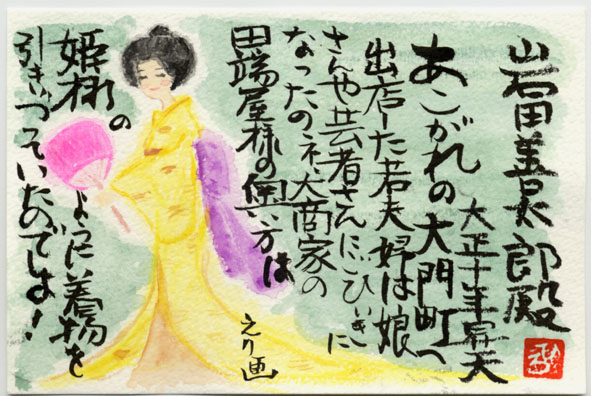 岩田善太郎殿
大正十年昇天
あこがれの大門町へ
出店した若夫婦は娘
さんや芸者さんにごひいきに
なったのネ、大商家の
田端屋様の奥方は
姫様の
ように着物を
引きずっていたのでしょ!
えり画